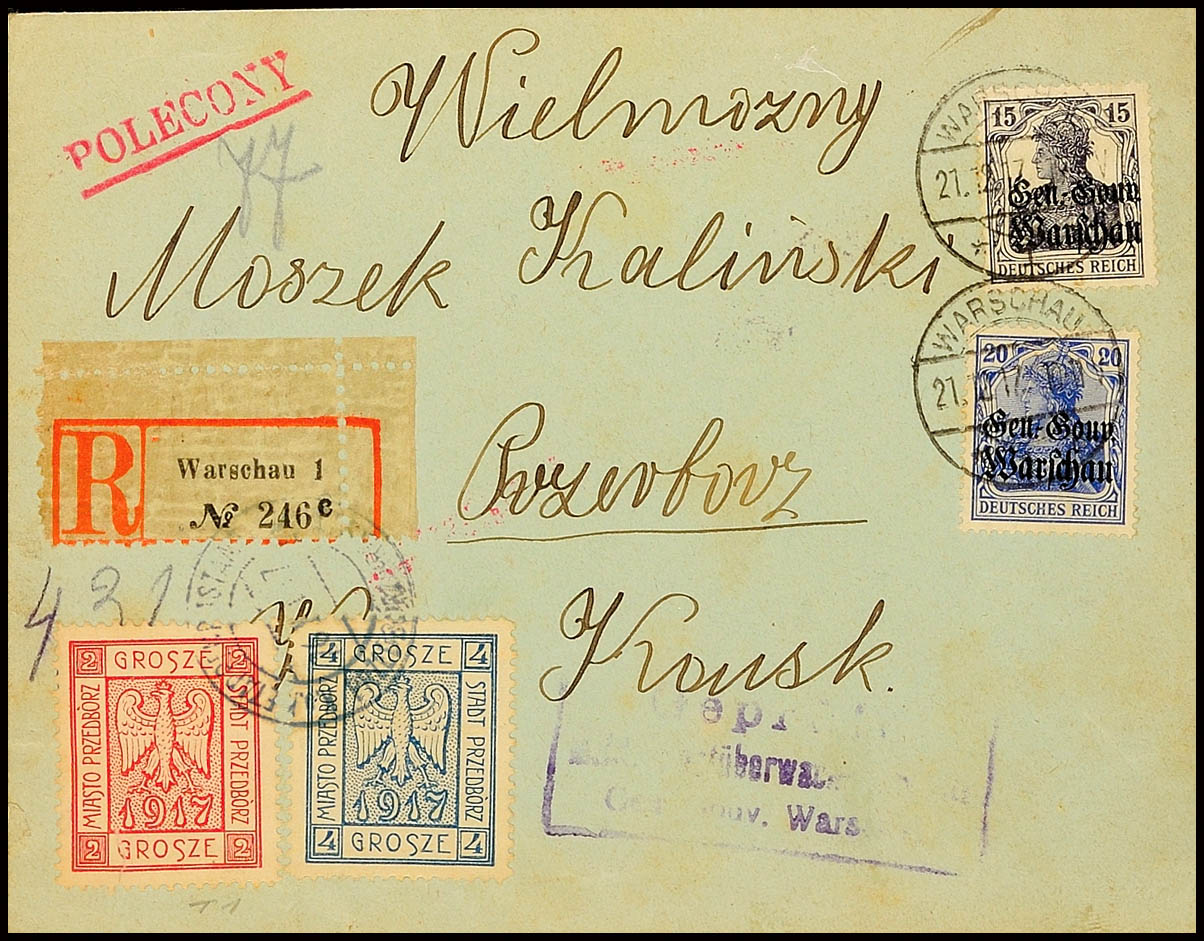 POLECONY
77
Wielmozny
Moszek Kaliński
Przerborz
Końsk.
WARSCHAU
21.12.17
15 15
Gen.-Gouv.
Warschau
DEUTSCHES REICH
WARSCHAU
21.
20 20
Gen.-Gouv.
Warschau
DEUTSCHES REICH
R
Warschau 1
№ 246c
431
2 GROSZE 2
MIASTO PRZEDBÓRZ
STADT PRZEDBÓRZ
1917
2 GROSZE 2
4 GROSZE 4
MIASTO PRZEDBÓRZ
STADT PRZEDBÓRZ
1917
4 GROSZE 4